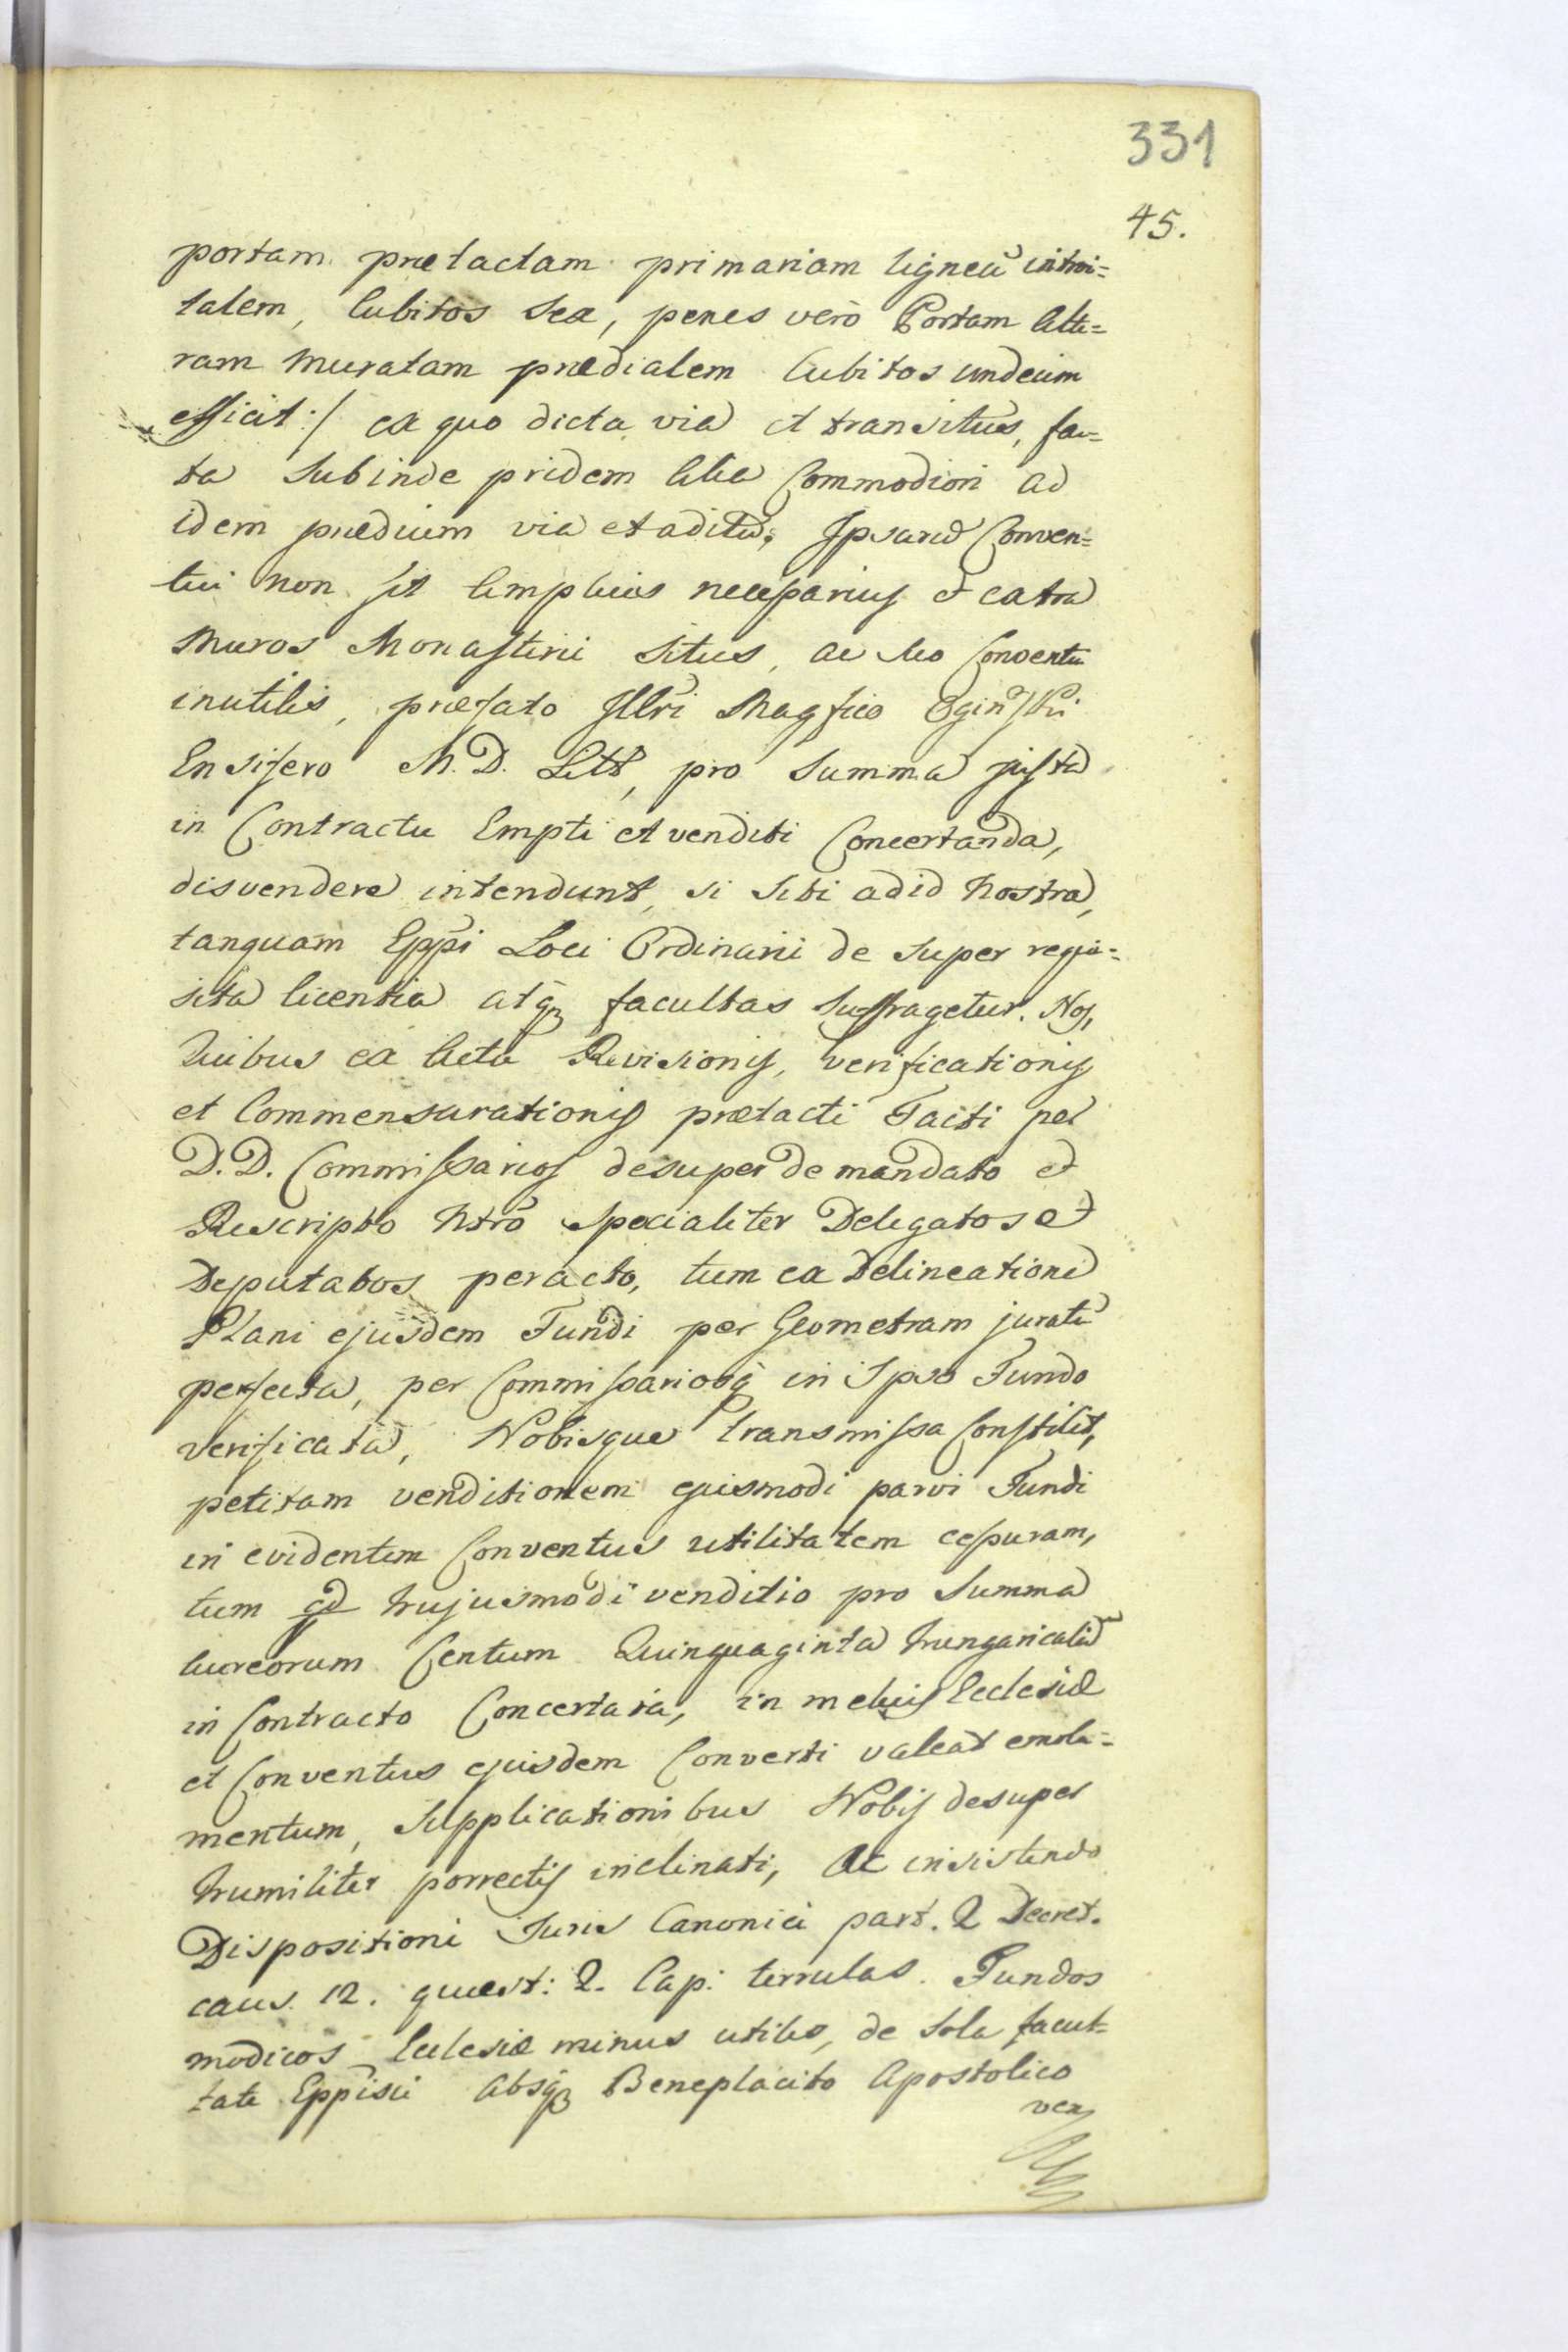 331
45.
portam prætactam primariam ligneã introi=
talem, Cubitos sex, penes verò Portam alte=
ram muratam prædialem Cubitos undecim
efficit :/ ex quo dicta via et transitus, fac=
ta subinde pridem alia Commodiori ad
idem prædium via et aditu, Ipsarũ Conven=
tui non sit amplius necessarius et extra
muros Monasterii situs, ac suo Conventu
inutilis, præfato Illri Magfico Oginski
Ensifero M. D. Litt, pro Summa justa
in Contractu Empti et venditi Concertanda,
disvendere intendunt, si sibi ad id Nostra,
tanquam Eppi Loci Ordinarii de super requi=
sita licentia atq3 facultas suffragetur. Nos,
Quibus ex Actu Revisionis, verificationis
et Commensurationis prætacti Facti per
D.D. Commissarios desuper de mandato et
Rescripto Ntro specialiter Delegatos et
Deputatos peracto, tum ex Delineatione
Plani ejusdem Fundi per Geometram juratũ
perfecta, per Commissariosq̃ in Ipso Fundo
verificata, Nobisque transmissa Constitit,
petitam venditionem ejusmodi parvi Fundi
in evidentem Conventus utilitatem cessuram,
tum qd hujusmodi venditio pro Summa
aureorum Centum Quinquaginta hungaricaliũ
in Contracto Concertata, in melius Ecclesiæ
et Conventus ejusdem Converti valeat emolu=
mentum, supplicationibus Nobis desuper
humiliter porrectis inclinati, Ac insistendo
Dispositioni Juris Canonici part. 2 Decret.
caus. 12. quæst: 2. Cap: terrulas. Fundos
modicos Ecclesiæ minus utiles, de sola facul=
tate Eppisci Absq3 Beneplacito Apostolico
ven